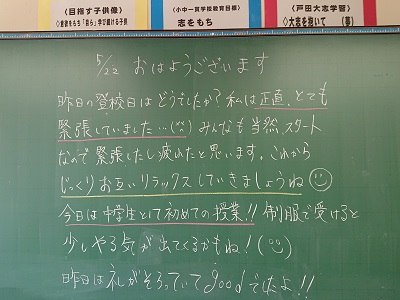 〈目指す子供像〉
◇意欲をもち「自ら」学び続ける子供
〈小中一貫学校教育目標〉
志をもち
〈戸田大志学習〉
◇大志を抱いて (夢)
5/22 おはようございます
昨日の登校日はどうでしたか?私は正直、とても
緊張していました…(^^;) みんなも当然、スタート
なので緊張したし疲れたと思います。これから
じっくりお互いリラックスしていきましょうね☺
今日は中学生として初めての授業!! 制服で受けると
少しやる気が出てくるかもね!(☺)
昨日は礼がそろっていてgoodでしたよ!!